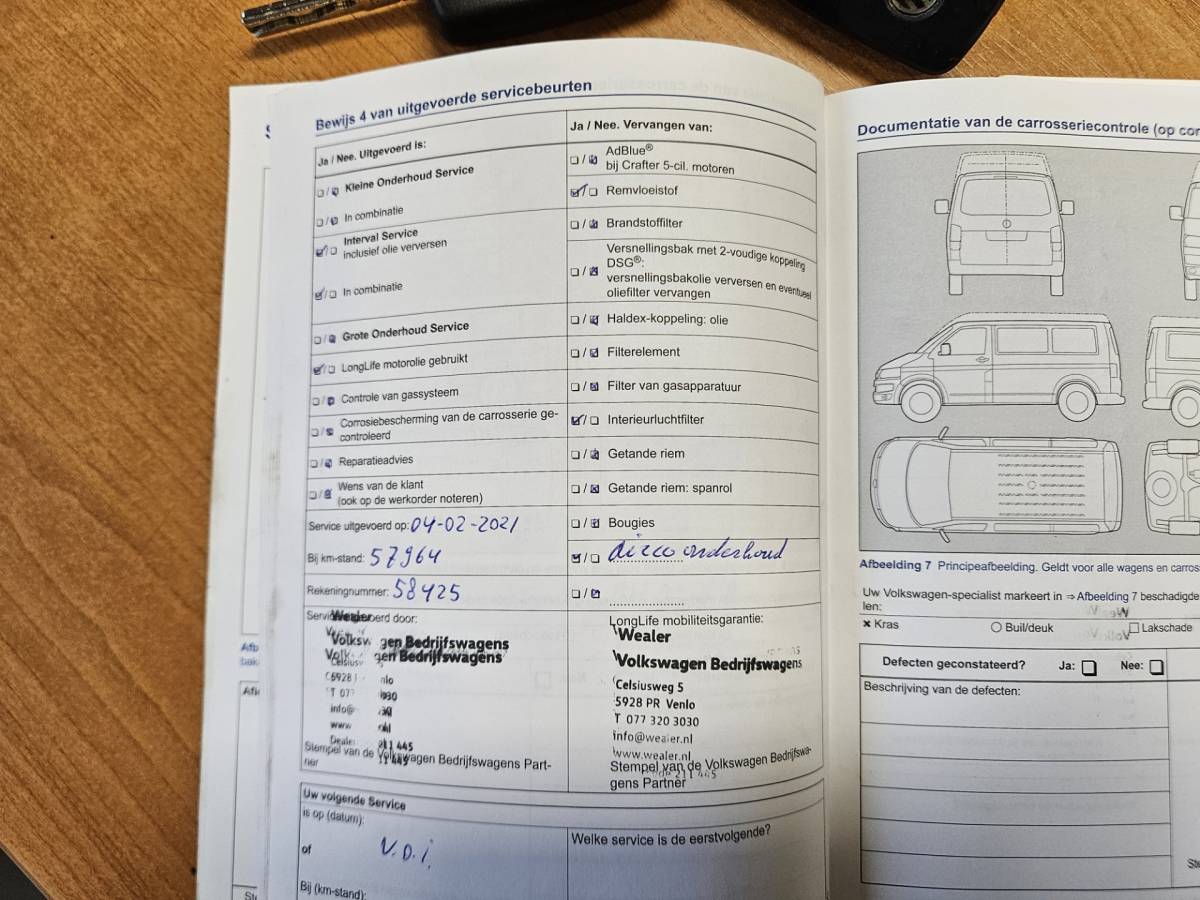 Bewijs 4 van uitgevoerde servicebeurten
Ja / Nee. Uitgevoerd is:
Kleine Onderhoud Service
In combinatie
Interval Service
inclusief olie verversen
In combinatie
Grote Onderhoud Service
LongLife motorolie gebruikt
Controle van gassysteem
Corrosiebescherming van de carrosserie ge-
controleerd
Reparatieadvies
Wens van de klant
(ook op de werkorder noteren)
Service uitgevoerd op: 04-02-2021
Bij km-stand: 57964
Rekeningnummer: 58425
Ja / Nee. Vervangen van:
AdBlue®
bij Crafter 5-cil. motoren
Remvloeistof
Brandstoffilter
Versnellingsbak met 2-voudige koppeling
DSG®:
versnellingsbakolie verversen en eventueel
oliefilter vervangen
Haldex-koppeling: olie
Filterelement
Filter van gasapparatuur
Interieurluchtfilter
Getande riem
Getande riem: spanrol
Bougies
airco onderhoud
Wealer
gen Bedrijfswagens
gen Bedrijfswagens
Stempel van de Volkswagen Bedrijfswagens Part-
ner
LongLife mobiliteitsgarantie:
Wealer
Volkswagen Bedrijfswagens
Celsiusweg 5
5928 PR Venlo
T 077 320 3030
info@wealer.nl
www.wealer.nl
Stempel van de Volkswagen Bedrijfswa-
gens Partner
Uw volgende Service
is op (datum):
of
V.D.I.
Bij (km-stand):
Welke service is de eerstvolgende?
Documentatie van de carrosseriecontrole (op
Afbeelding 7 Principeafbeelding. Geldt voor alle wagens en
Uw Volkswagen-specialist markeert in ⇒ Afbeelding 7 beschadigde
len:
× Kras
Buil/deuk
Lakschade
Defecten geconstateerd?
Ja:
Nee:
Beschrijving van de defecten: